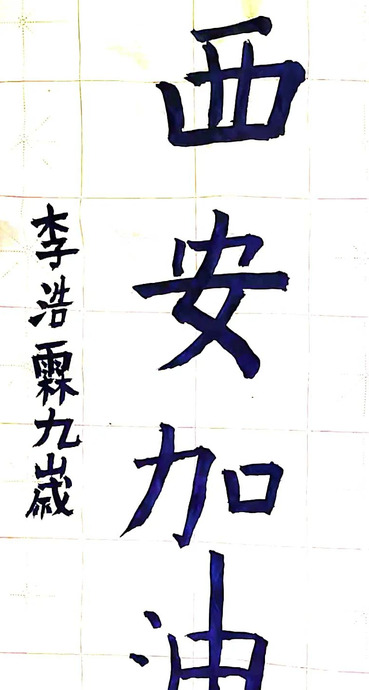 西安加油
李浩霖九歲